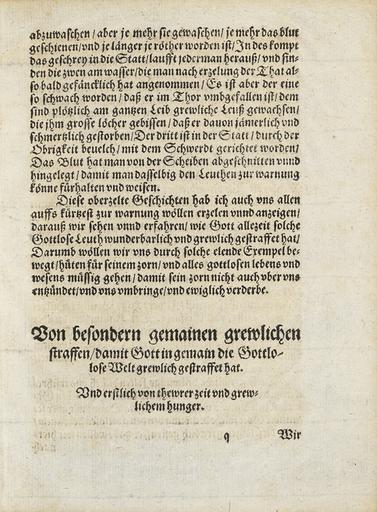 abzuwaschen / aber je mehr sie gewaschen / je mehr das blut
geschienen / vnd je länger je röther worden ist / In des kompt
das geschrey in die Statt / laufft jederman herauß / vnd fin-
den die zwen am wasser / die man nach erzelung der That al-
so bald gefäncklich hat angenommen / Es ist aber der eine
so schwach worden / daß er im Thor vmbgefallen ist / dem
sind plötzlich am gantzen Leib grewliche Leuß gewachsen /
die jhm grosse löcher gebissen / daß er dauon jämerlich vnd
schmertzlich gestorben / Der dritt ist in der Statt / durch der
Obrigkeit beuelch / mit dem Schwerdt gerichtet worden /
Das Blut hat man von der Scheiben abgeschnitten vnnd
hingelegt / damit man dasselbig den Leuthen zur warnung
könne fürhalten vnd weisen.
Diese oberzelte Geschichten hab ich auch vns allen
auffs kürtzest zur warnung wöllen erzelen vnnd anzeigen /
darauß wir sehen vnnd erfahren / wie Gott allezeit solche
Gottlose Leuth wunderbarlich vnd grewlich gestraffet hat /
Darumb wöllen wir vns durch solche elende Exempel be-
wegt / hüten für seinem zorn / vnd alles gottlosen lebens vnd
wesens müssig gehen / damit sein zorn nicht auch vber vns
entzündet / vnd vns vmbringe / vnd ewiglich verderbe.
Von besondern gemainen grewlichen
straffen / damit Gott in gemain die Gottlo-
lose Welt grewlich gestraffet hat.
Vnd erstlich von thewrer zeit vnd grew-
lichem hunger.
q Wir